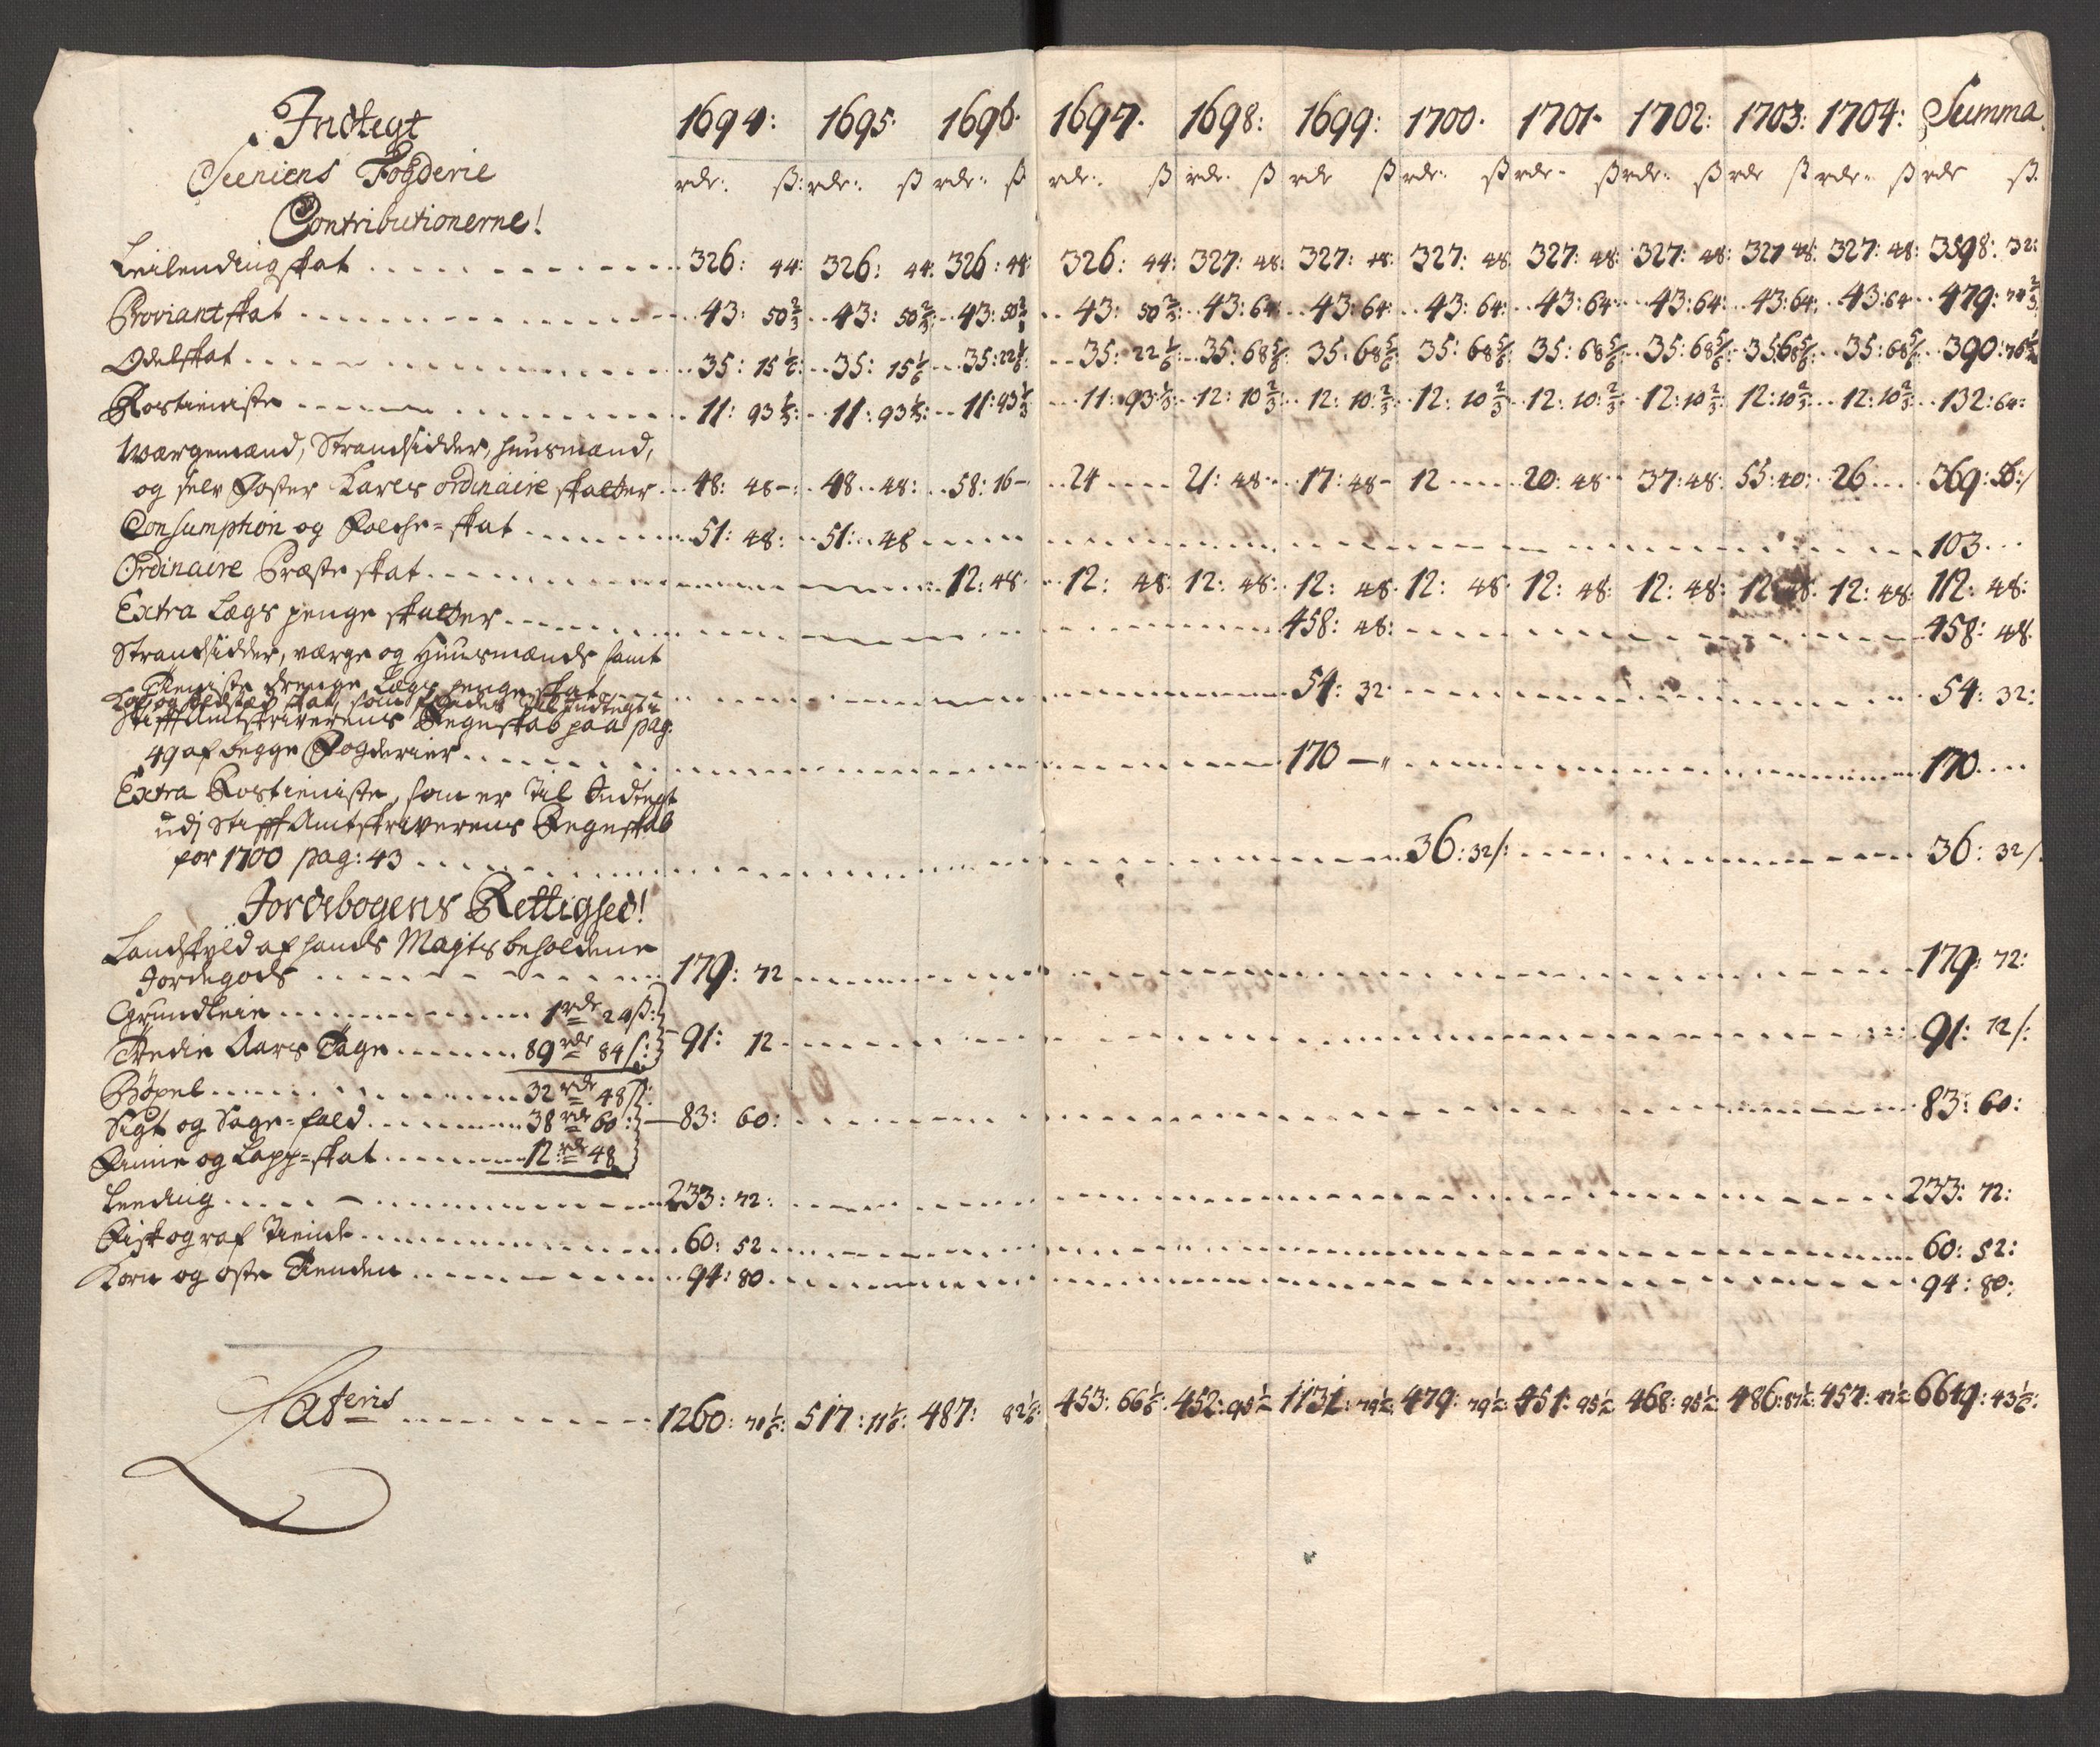 Indtegt 1694: 1695: 1696. 1697. 1698: 1699: 1700. 1701. 1702: 1703: 1704: Summa
Seeniens Fogderie rdr: ß: rdr: ß rdr: ß rdr: ß rdr ß rdr ß rdr: ß rdr ß rdr: ß rdr ß rdr ß rdr ß
Contributionerne!
Leilendingskat 326: 44: 326: 44: 326: 44: 326: 44: 327: 48: 327: 48: 327: 48 327: 48: 327: 48: 327 48: 327: 48: 3598: 32:
Proviantskat 43: 50 2/3 43: 50 2/3 43: 50 2/3 43: 50 2/3 43: 64 43: 64 43: 64 43: 64 43: 64: 43: 64 43: 64 479: 74 2/3
Odelskat 35: 15 1/6: 35: 15 1/6 35: 22 1/6 35: 22 1/6 35: 68 5/6 35: 68 5/6 35: 68 5/6 35: 68 5/6 35: 68 5/6 35: 68 5/6 35: 68 5/6 390: 76 1/2
Rostieniste 11: 93 1/3: 11: 93 1/3: 11: 93 1/3 11: 93 1/3: 12: 10 2/3 12: 10 2/3 12: 10 2/3 12: 10 2/3 12: 10 2/3 12: 10 2/3 12: 10 2/3 132: 64:
Wærgemænd, Strandsidder, huusmænd,
og selv Foster Karls ordinaire skatter 48: 48 48 48: 58: 16 24 21: 48 17: 48 12 20: 48 37: 48: 55: 40: 26 369: 56:
Consumption og Folche-skat 51: 48: 51: 48 103
Ordinaire Præste skat 12: 48 12: 48 12: 48: 12: 48 12: 48 12: 48 12: 48: 12: 48. 12: 48 112: 48:
Extra Lægs penge skatter 458: 48: 458: 48.
Strandsidder, værge og Huusmænds samt
Tieniste drenge Lægs penge skat 54: 32 54: 32:
Stiff Amtskriverens Regenskab paa pag:
49 af begge Fogderier 170 170
Extra Rostieniste, som er til Indtegt
udj Stifft Amtskriverens Regenskab
for 1700 pag: 43 36: 32 36: 32
Jordebogens Rettighed!
Landskyld af hands Mayts beholdene
Jordegods 179: 72 179: 72:
Grundleie 1 rdr 24 ß:
Tredie Aars Tage 89 rdr 84 ß: 91: 12 91: 12
Bøxel 32 rdr 48 ß:
Sigt og Sage-fald 38 rdr 60: 83: 60: 83: 60:
Finne og Lapp-skat 12 rdr 48
Leeding 233: 72: 233: 72:
Fisk og raf Tiende 60: 52 60: 52:
Korn og oste Tienden 94: 80 94: 80:
Lateris 1260: 71 1/6: 517: 11 1/6: 487: 82 1/6: 453: 66 1/6 452: 95 1/2 1131: 79 1/2 479: 79 1/2 451: 95 1/2 468: 95 1/2 486: 87 1/2 457: 47 1/2 6649: 43 1/6: